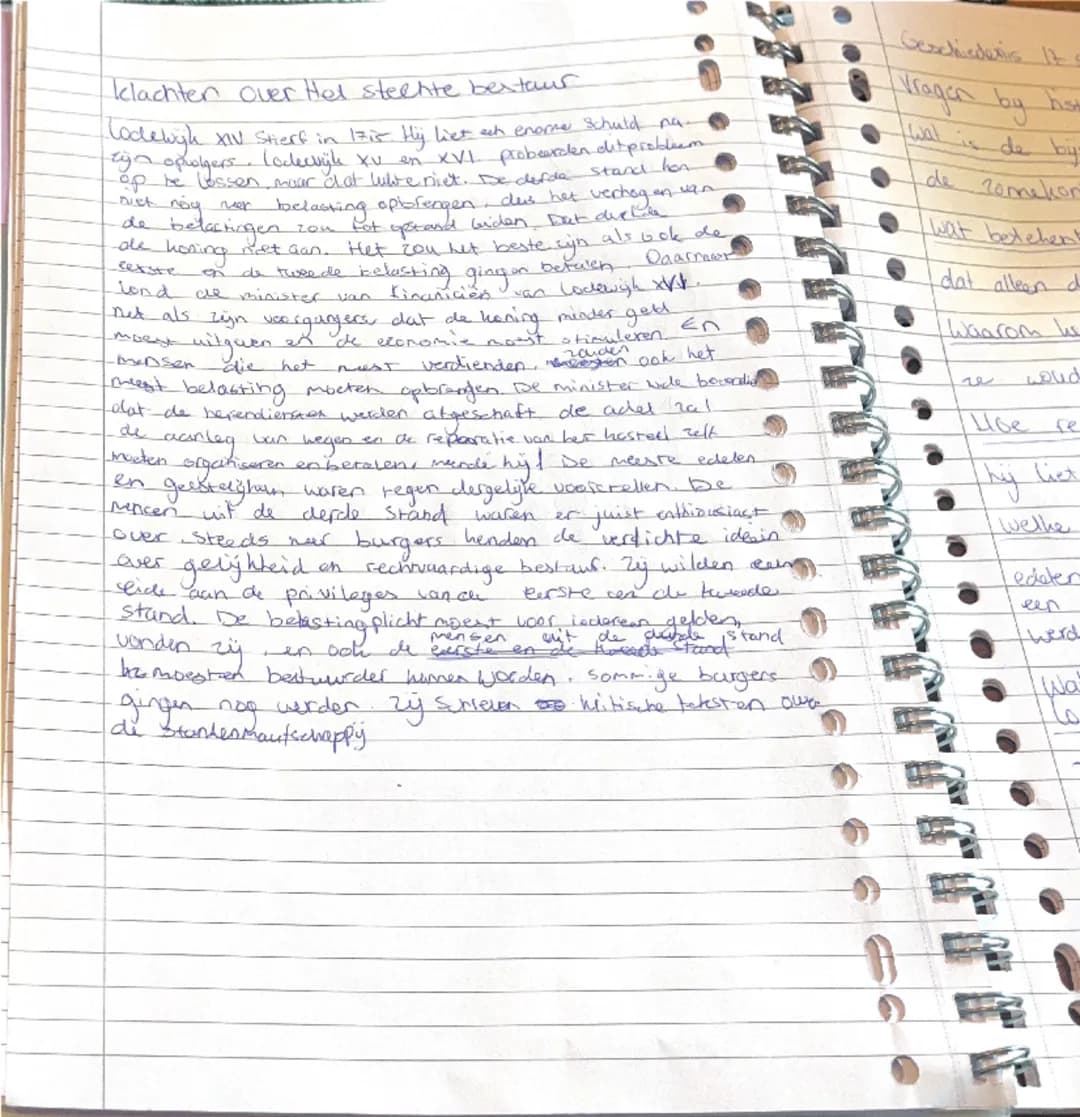 klachten over Het slechte bestuur
Lodewijk XIV Stierf in 1715 Hij liet een enorme schuld na.
zijn opvolgers. Lodewijk XV en XVI probeerden dit probleem
op te lossen, maar dat lukte niet. De derde stand kon
niet nog meer belasting opbrengen, dus het verhogen van
de belastingen zou tot opstand leiden. Dat durfde
de koning niet aan. Het zou het beste zijn als ook de
eerste en de tweede belasting gingen betalen. Daarnaast
vond de minister van Financiën van Lodewijk XVI.
net als zijn voorgangers, dat de koning minder geld
moest uitgeven en de economie moest stimuleren. En
mensen die het meest verdienden, zouden ook het
meest belasting moeten opbrengen. De minister wilde bovendien
dat de herendiensten werden afgeschaft. de adel zal
de aanleg van wegen en de reparatie van het kasteel zelf
moeten organiseren en betalen, meende hij! De meeste edelen
en geestelijken waren tegen dergelijke voorstellen. De
mensen uit de derde Stand waren er juist enthousiast
over. Steeds meer burgers kenden de verlichte ideeën
over gelijkheid en rechtvaardige bestuur. Zij wilden een
einde aan de privileges van de eerste en de tweede
stand. De belastingplicht moest voor iedereen gelden,
vonden zij, en ook de mensen uit de derde stand
eerste en de tweede stand
moesten bestuurder kunnen worden. Sommige burgers
gingen nog verder. Zij schreven kritische teksten over
de Standenmaatschappij
Geschiedenis
Vragen by
wat is de
de zonnekon
wat beteken
dat alleen d
Waarom
ze woud
Hoe re
hij liet
welke
edelen
een
werd
Wa